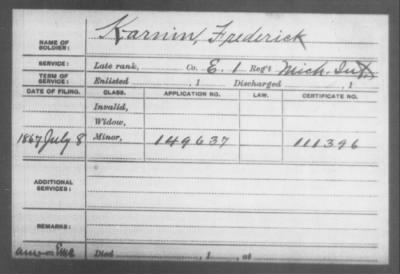 NAME OF SOLDIER: Karnin, Frederick
SERVICE: Late rank, Co. E. 1 Reg't Mich. Inf.
TERM OF SERVICE: Enlisted , 1 Discharged , 1
DATE OF FILING. CLASS. APPLICATION NO. LAW. CERTIFICATE NO.
Invalid,
Widow,
1867 July 8 Minor, 149637 111396
ADDITIONAL SERVICES:
REMARKS:
Died , 1 , at